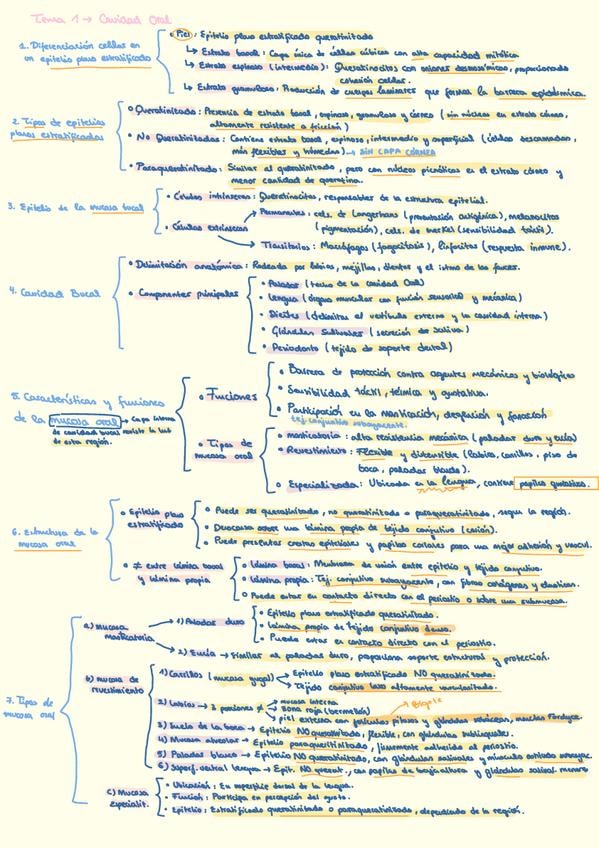 Tema 1 → Cavidad Oral
1. Diferenciación celular en un epitelio plano estratificado
• Piel: Epitelio plano estratificado queratinitado
↳ Estrato basal: Capa única de células cúbicas con alta capacidad mitótica.
↳ Estrato espinoso (intermedio): Queratinocitos con uniones desmosómicas, proporcionado cohesión celular.
↳ Estrato granuloso: Producción de cuerpos laminares que forman la barrera epidérmica.
2. Tipos de epitelios planos estratificados
• Queratinitado: Presencia de estrato basal, espinoso, granuloso y córneo (sin núcleos en estrato córneo,
altamente resistente a fricción)
• No Queratinitados: Contiene estrato basal, espinoso, intermedio y superficial (células descamadas,
más flexibles y húmedas) → SIN CAPA CÓRNEA
• Paraqueratinitado: Similar al queratinitado, pero con núcleos picnóticos en el estrato córneo y
menor cantidad de queratina.
3. Epitelio de la mucosa bucal
• Células intrínsecas: Queratinocitos, responsables de la estructura epitelial.
• Células extrínsecas
Permanentes: cels. de Langerhans (presentación antigénica), melanocitos
(pigmentación), cels. de Merkel (sensibilidad táctil).
Transitorias: Macrófagos (fagocitosis), linfocitos (respuesta inmune).
4. Cavidad Bucal
• Delimitación anatómica: Rodeada por labios, mejillas, dientes y el istmo de las fauces.
• Componentes principales
• Paladar (techo de la cavidad Oral)
• Lengua (órgano muscular con función sensorial y mecánica)
• Dientes (delimitan el vestíbulo externo y la cavidad interna)
• Glándulas Salivales (secreción de saliva)
• Periodonto (tejido de soporte dental)
5. Características y funciones
de la mucosa oral → Capa interna
de cavidad bucal
de esta región.
• Funciones
• Barrera de protección contra agentes mecánicos y biológicos
• Sensibilidad táctil, térmica y gustativa.
• Participación en la masticación, deglución y fonación
tej. conjuntivo subyacente.
• Tipos de mucosa oral
• masticatoria: alta resistencia mecánica (paladar duro y encía)
• Revestimiento: Flexible y distensible (labios, carrillos, piso de
boca, paladar blando).
• Especializada: Ubicada en la lengua, contiene papilas gustativas.
6. Estructura de la mucosa oral
• Epitelio plano estratificado
• Puede ser queratinitado, no queratinitado o paraqueratinitado, según la región.
• Descansa sobre una lámina propia de tejido conjuntivo (corion).
• Puede presentar crestas epiteliales y papilas coriales para una mejor adhesión y vascul.
• ≠ entre lámina basal y lámina propia
• Lámina basal: Membrana de unión entre epitelio y tejido conjuntivo.
• Lámina propia: Tej. conjuntivo subyacente, con fibras colágenas y elásticas.
• Puede estar en contacto directo con el periostio o sobre una submucosa.
7. Tipos de mucosa oral
a) mucosa masticatoria
1) Paladar duro
• Epitelio plano estratificado queratinitado.
• Lámina propia de tejido conjuntivo denso.
• Puede estar en contacto directo con el periostio.
2) Encía → Similar al paladar duro, proporciona soporte estructural y protección.
b) mucosa de revestimiento
1) Carrillos (mucosa yugal)
Epitelio plano estratificado NO queratinitado.
Tejido conjuntivo laxo altamente vascularizado.
2) Labios → 3 porciones ≠
mucosa interna
zona roja (bermellón)
→ Bigote
piel externa con folículos pilosos y glándulas sebáceas, muchos Fordyce.
3) Suelo de la boca → Epitelio NO queratinitado, flexible, con glándulas sublinguales.
4) Mucosa alveolar → Epitelio paraqueratinitado, finamente adherido al periostio.
5) Paladar blando → Epitelio NO queratinitado, con glándulas salivales y músculo estriado
6) Superf. ventral lengua → Epit. NO querat., con papilas de baja altura y glándulas salival. menores
c) Mucosa especialit.
• Ubicación: En superficie dorsal de la lengua.
• Función: Participa en percepción del gusto.
• Epitelio: Estratificado queratinitado o paraqueratinitado, dependiendo de la región.